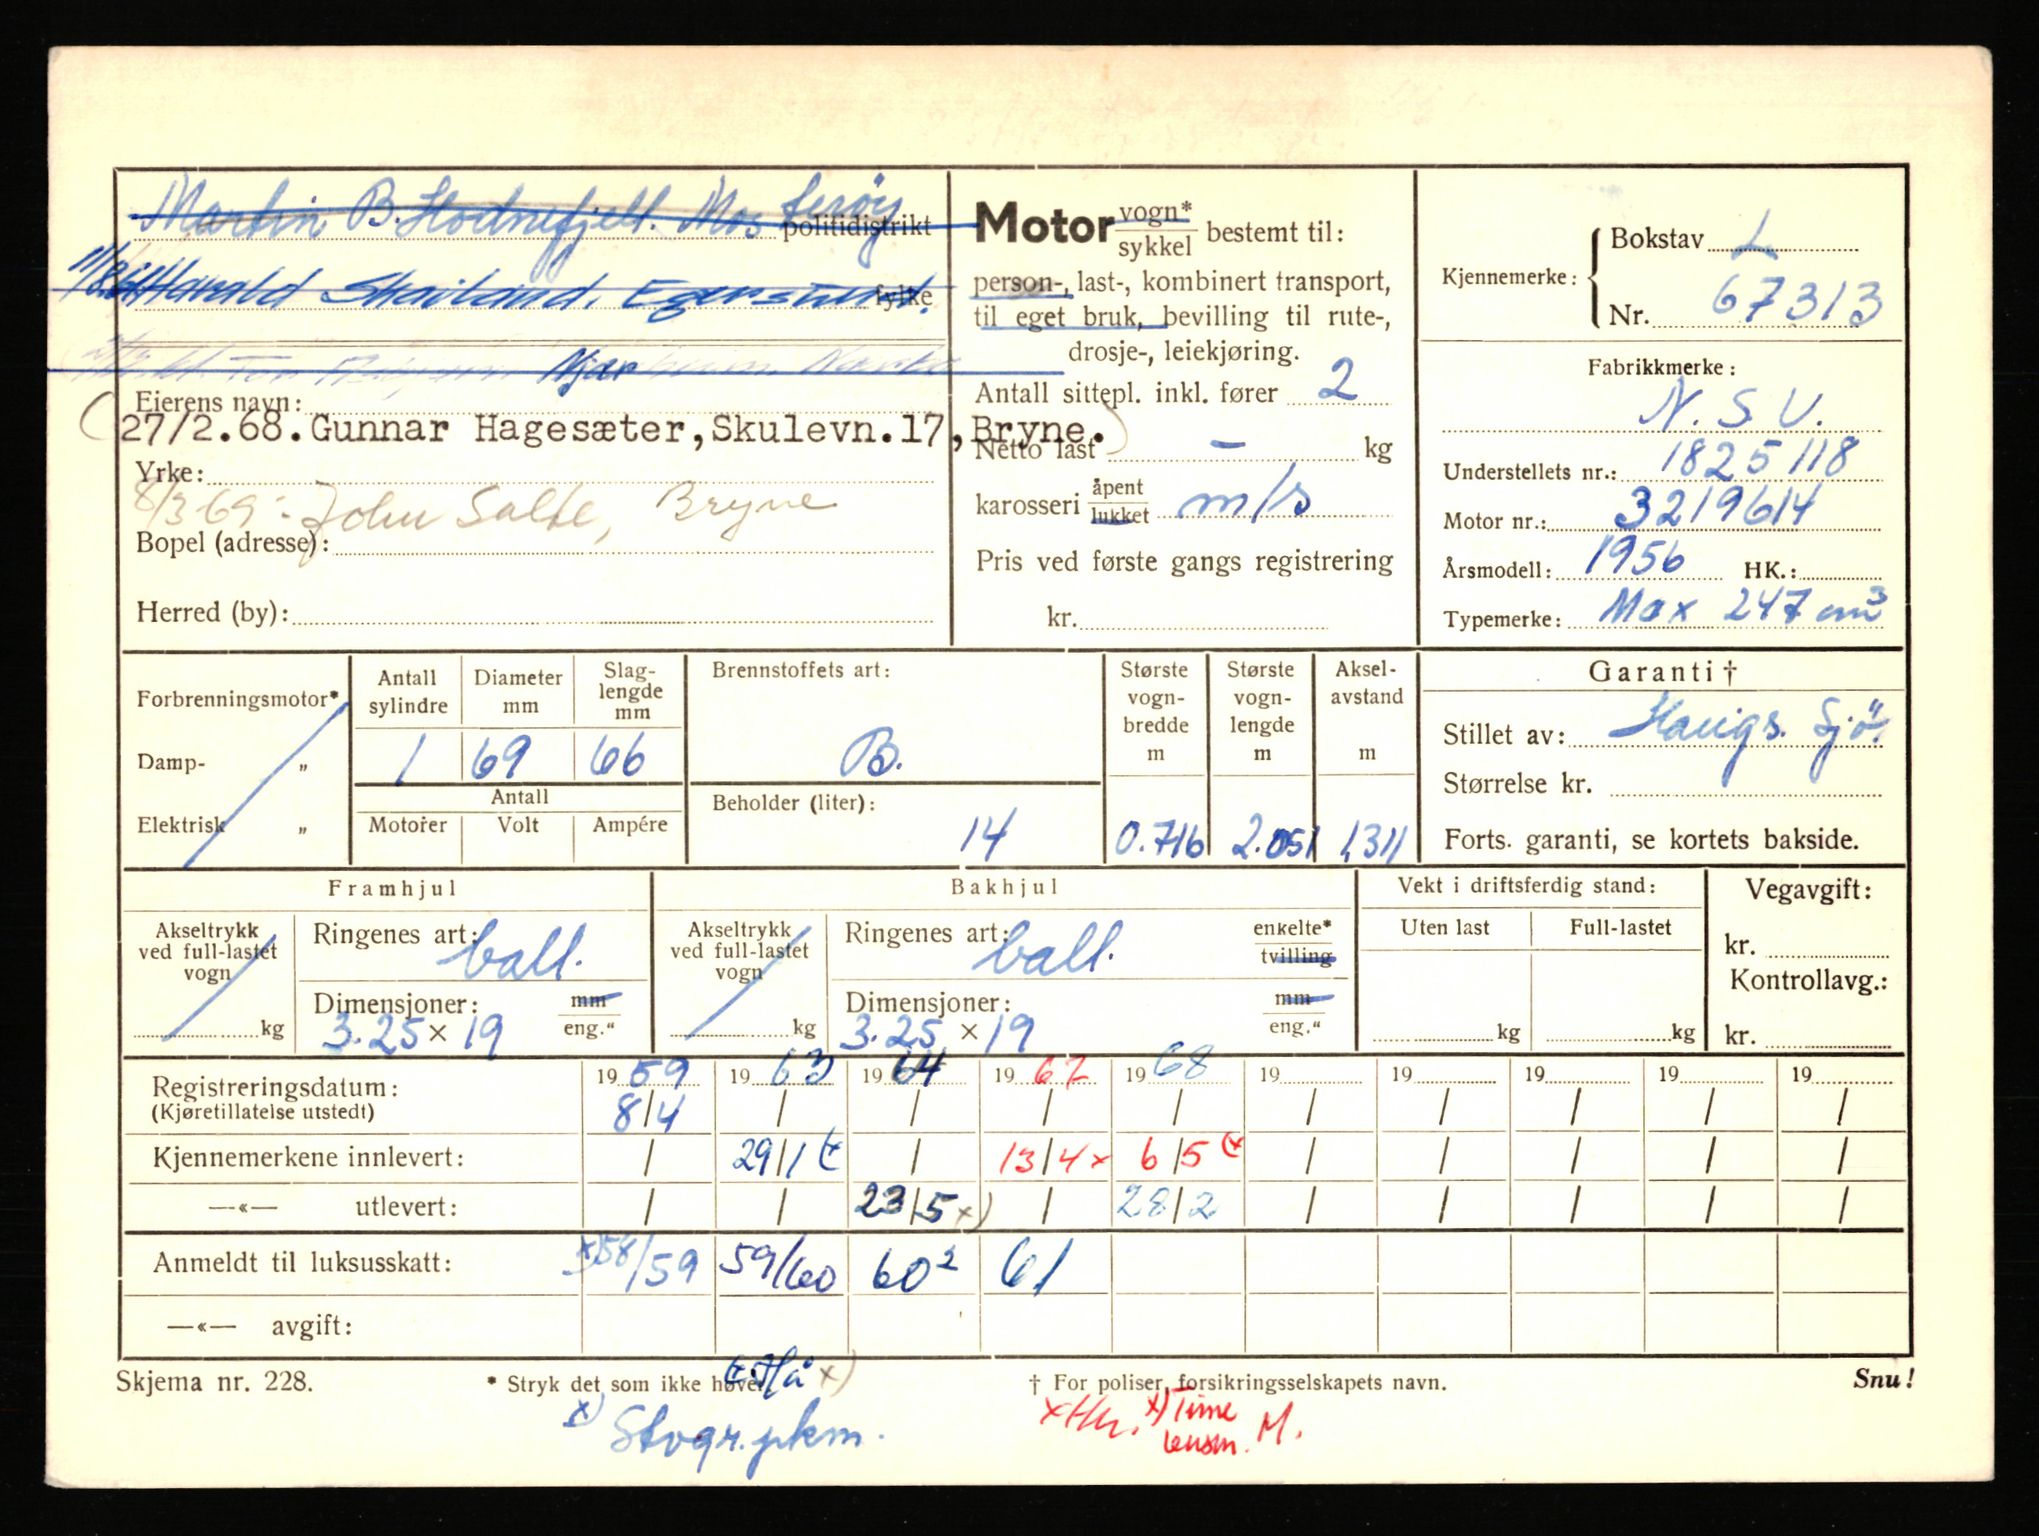 Martin B. Hodnefjell. Mosterøy
politidistrikt
Harald Skailand. Egersund.
fylke
Njærheim Nærbø
Eierens navn:
27/2.68. Gunnar Hagesæter, Skulevn. 17, Bryne.
Yrke:
8/3 69: John Salte, Bryne
Bopel (adresse):
Herred (by):
Motor vogn* / sykkel bestemt til:
person-, last-, kombinert transport,
til eget bruk, bevilling til rute-,
drosje-, leiekjøring.
Antall sittepl. inkl. fører 2
Netto last - kg
karosseri åpent / lukket m/s
Pris ved første gangs registrering
kr.
Kjennemerke: Bokstav L
Nr. 67313
Fabrikkmerke:
N.S.U.
Understellets nr.: 1825118
Motor nr.: 3219614
Årsmodell: 1956 HK.:
Typemerke: Max 247 cm3
Forbrenningsmotor*
Damp- „
Elektrisk „
Antall sylindre Diameter mm Slag-lengde mm
1 69 66
Antall
Motorer Volt Ampére
Brennstoffets art:
B.
Beholder (liter):
14
Største vogn-bredde m Største vogn-lengde m Aksel-avstand m
0.716 2.051 1,311
Garanti †
Stillet av: Haugs. Sjø.
Størrelse kr.
Forts. garanti, se kortets bakside.
Framhjul
Akseltrykk ved full-lastet vogn kg
Ringenes art: ball.
Dimensjoner: mm / eng."
3.25 × 19
Bakhjul
Akseltrykk ved full-lastet vogn kg
Ringenes art: ball. enkelte* / tvilling
Dimensjoner: mm / eng."
3.25 × 19
Vekt i driftsferdig stand:
Uten last Full-lastet
kg kg
Vegavgift:
kr.
Kontrollavg.:
kr.
Registreringsdatum: 19 59 19 63 19 64 19 67 19 68 19 19 19 19 19
(Kjøretillatelse utstedt) 8/4 / / / / / / / / /
Kjennemerkene innlevert: / 29/1 / 13/4 x 6/5 / / / / /
—«— utlevert: / / 23/5 x) / 28/2 / / / / /
Anmeldt til luksusskatt: x) 58/59 59/60 60² 61
—«— avgift:
Skjema nr. 228.
* Stryk det som ikke høver
Hå x)
† For poliser, forsikringsselskapets navn.
Snu!
x) Stvgr. pkm.
x) Time
lensm. M.